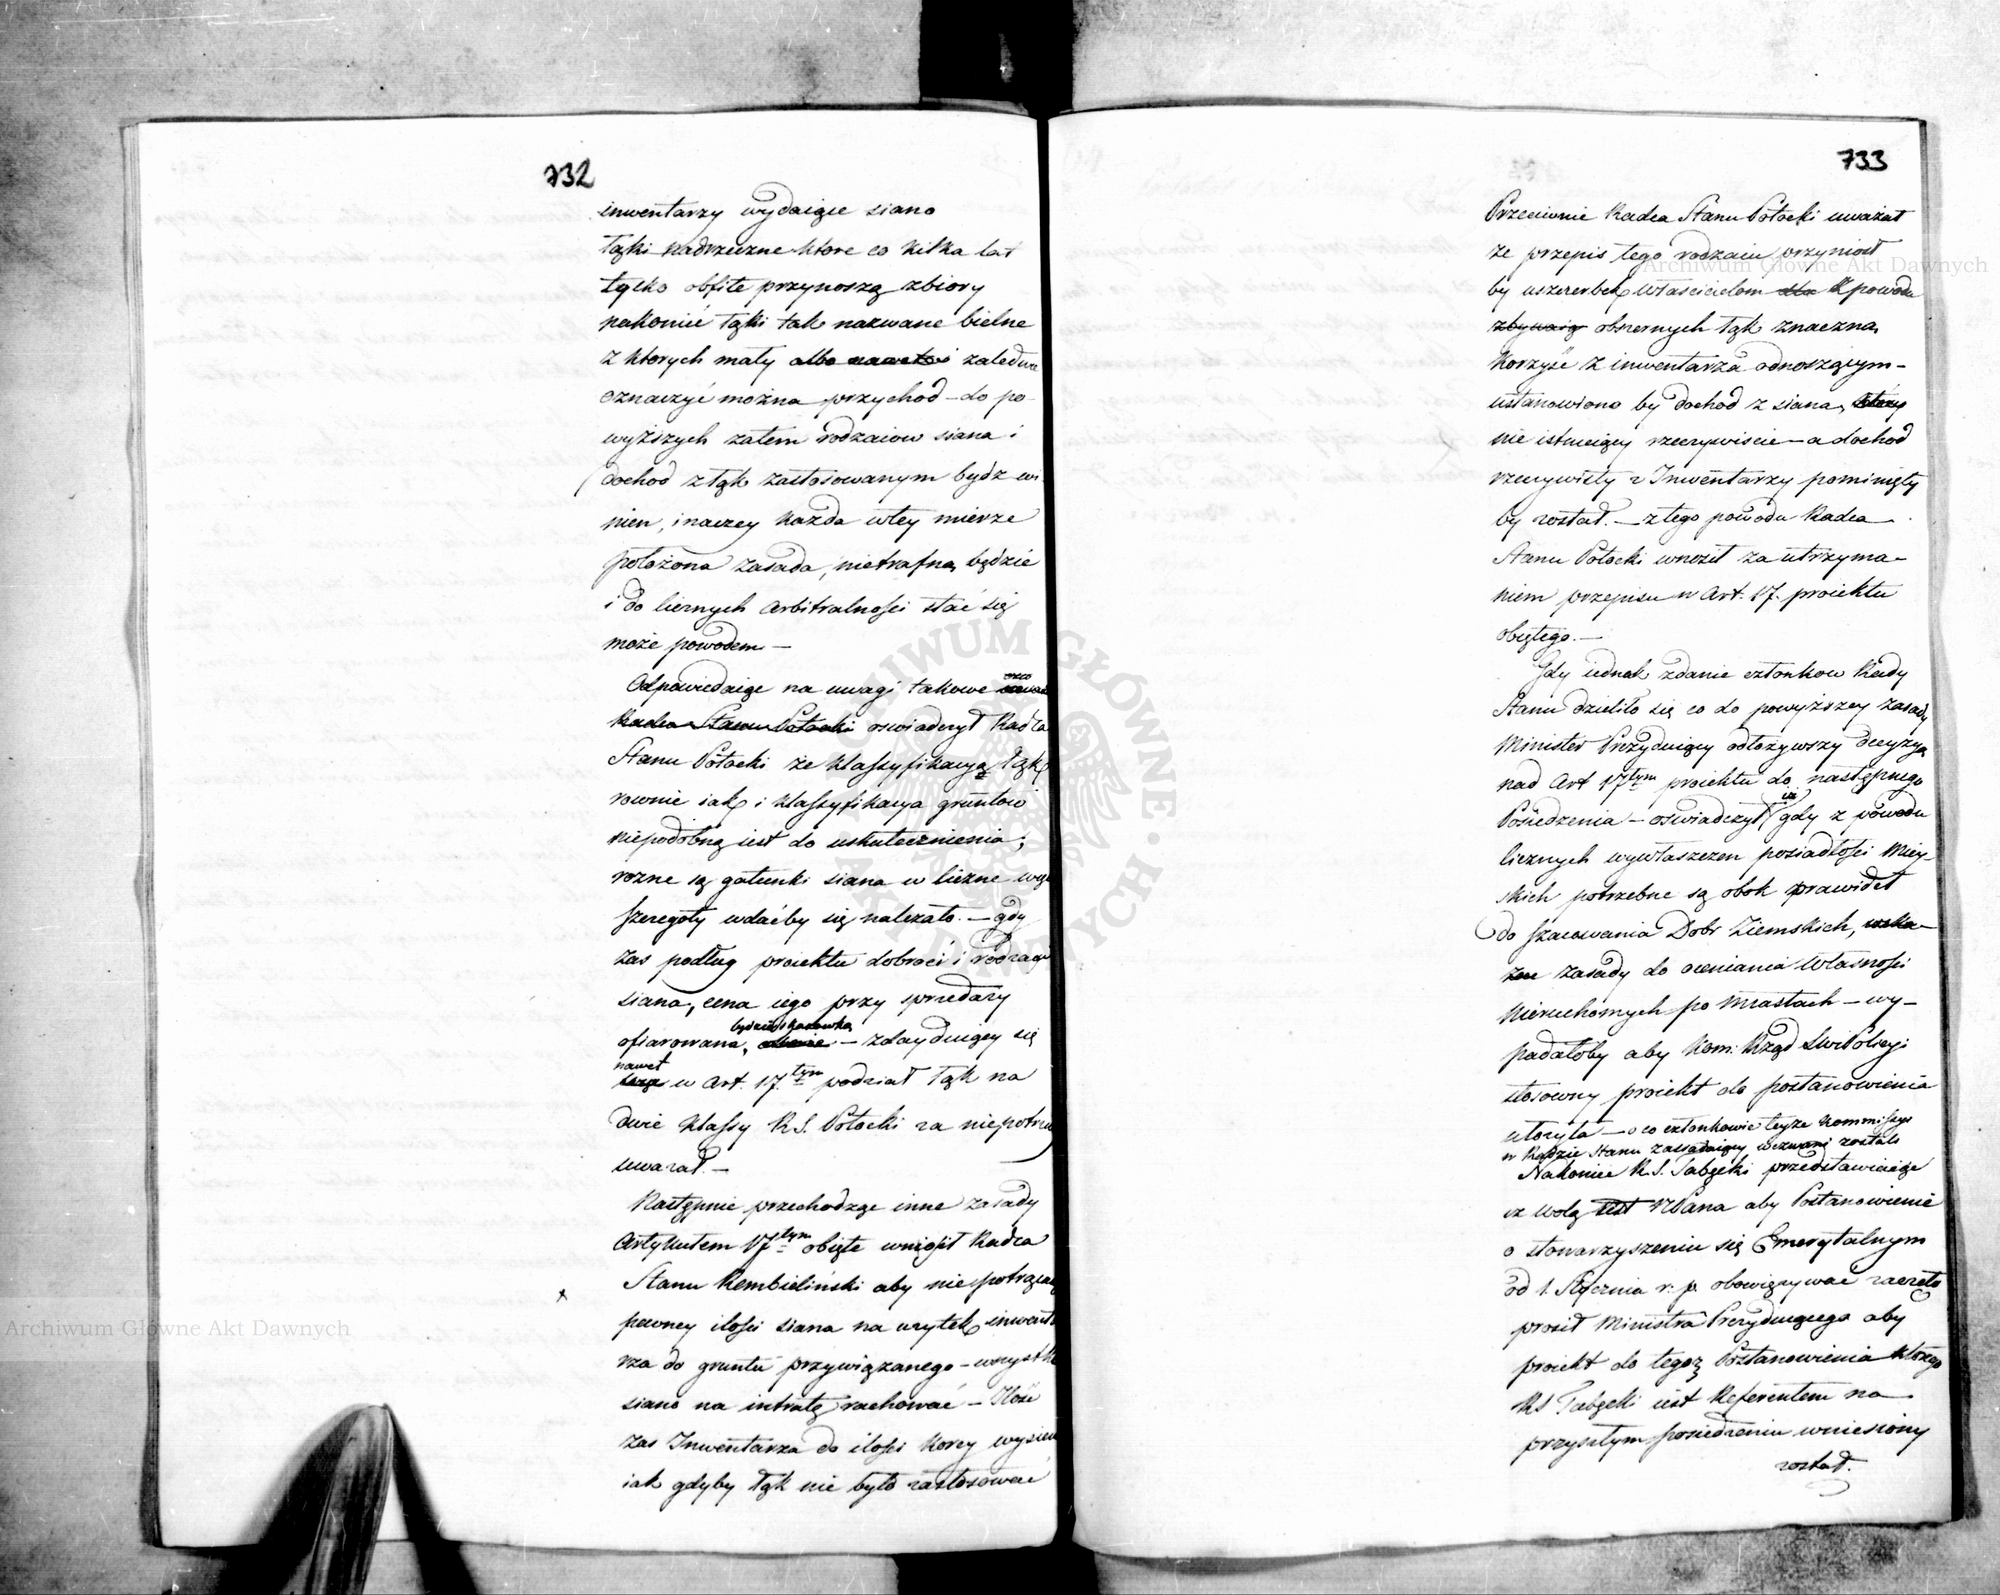 732
inwentarzy wydaiące siano
łąki nadrzeczne które co kilka lat
tylko obfite przynoszą zbiory
nakoniec łąki tak nazwane bielne
z których mały albo nawet i zaledwie
oznaczyć można przychod – do po-
wyższych zatem rodzaiow siana i
dochod z łąk zastosowanym bydz wi
nien, inaczey każda wtey mierze
położona zasada, nietrafną będzie
i do licznych arbitralności stać się
może powodem –
Odpowiedaiąc na uwagi takowe
Radca Stanu Potocki oswiadczył Radca
Stanu Potocki że klassyfikacya łąk
rownie iak i klassyfikacya gruntow
niepodobną iest do uskutecznienia,
rozne są gatunki siana w liczne
szczegoły wdaćby się należało. – gdy
zas podług proiektu dobroci i rodzaiu
siana, cena iego przy sprzedazy
bydzie skazowką
ofiarowana, – zdayduiący się
nawet
w Art. 17.tym podział łąk na
dwie klassy R.S. Potocki za niepotrze
uwazał. –
Następnie przechodząc inne zasady
Artykułem 17tym obięte wniosł Radca
Stanu Rembieliński aby nie potrącaiąc
pewney ilości siana na uzytek inwenta
rza do gruntu przywiązanego – wszystko
siano na intratę rachować – Ilość
zas Inwentarza do ilości korcy wysiewu
iak gdyby łąk nie było zastosować
733
Przeciwnie Radca Stanu Potocki uważał
że przepis tego rodzaiu przyniosł
by uszczerbek Właścicielom dla z powodu
zbywaią obszernych łąk znaczną
korzyść z inwentarza odnoszącym –
ustanowiono by dochod z siana, który
nie istnieiący rzeczywiscie – a dochod
rzeczywisty z Inwentarzy pominięty
by został. – z tego powodu Radca
Stanu Potocki wnosił za utrzyma-
niem przepisu w Art. 17. proiektu
obiętego. –
Gdy iednak zdanie członkow Rady
Stanu dzieliło się co do powyższey zasady
Minister Prezyduiący odłożywszy decyzyą
nad Art 17tym proiektu do następnego
iż
Posiedzenia – oswiadczył gdy z powodu
licznych wywłaszczen posiadłości miey-
skich potrzebne są obok prawideł
do szacowania Dobr Ziemskich, wska-
zane zasady do oceniania Własności
nieruchomych po Miastach – wy-
padałoby aby Kom: Rząd Swił Policyi
stosowny proiekt do postanowienia
ułożyła – o co członkowie teyże Kommissyi
w Radzie Stanu zassadaiący wezwani zostali
Nakoniec R.S. Tabęcki przedstawiaiąc
iż wolą iest NPana aby Postanowienie
o stowarzyszeniu się Emerytalnym
od 1. Stycznia r: p. obowięzywac zaczęło
prosił Ministra Prezyduiącego aby
proiekt do tegoż Postanowienia którego
RS Tabęcki iest Referentem na
przyszłym posiedzeniu wniesiony
został.
Archiwum Główne Akt Dawnych
Archiwum Główne Akt Dawnych
ARCHIWUM GŁÓWNE AKT DAWNYCH